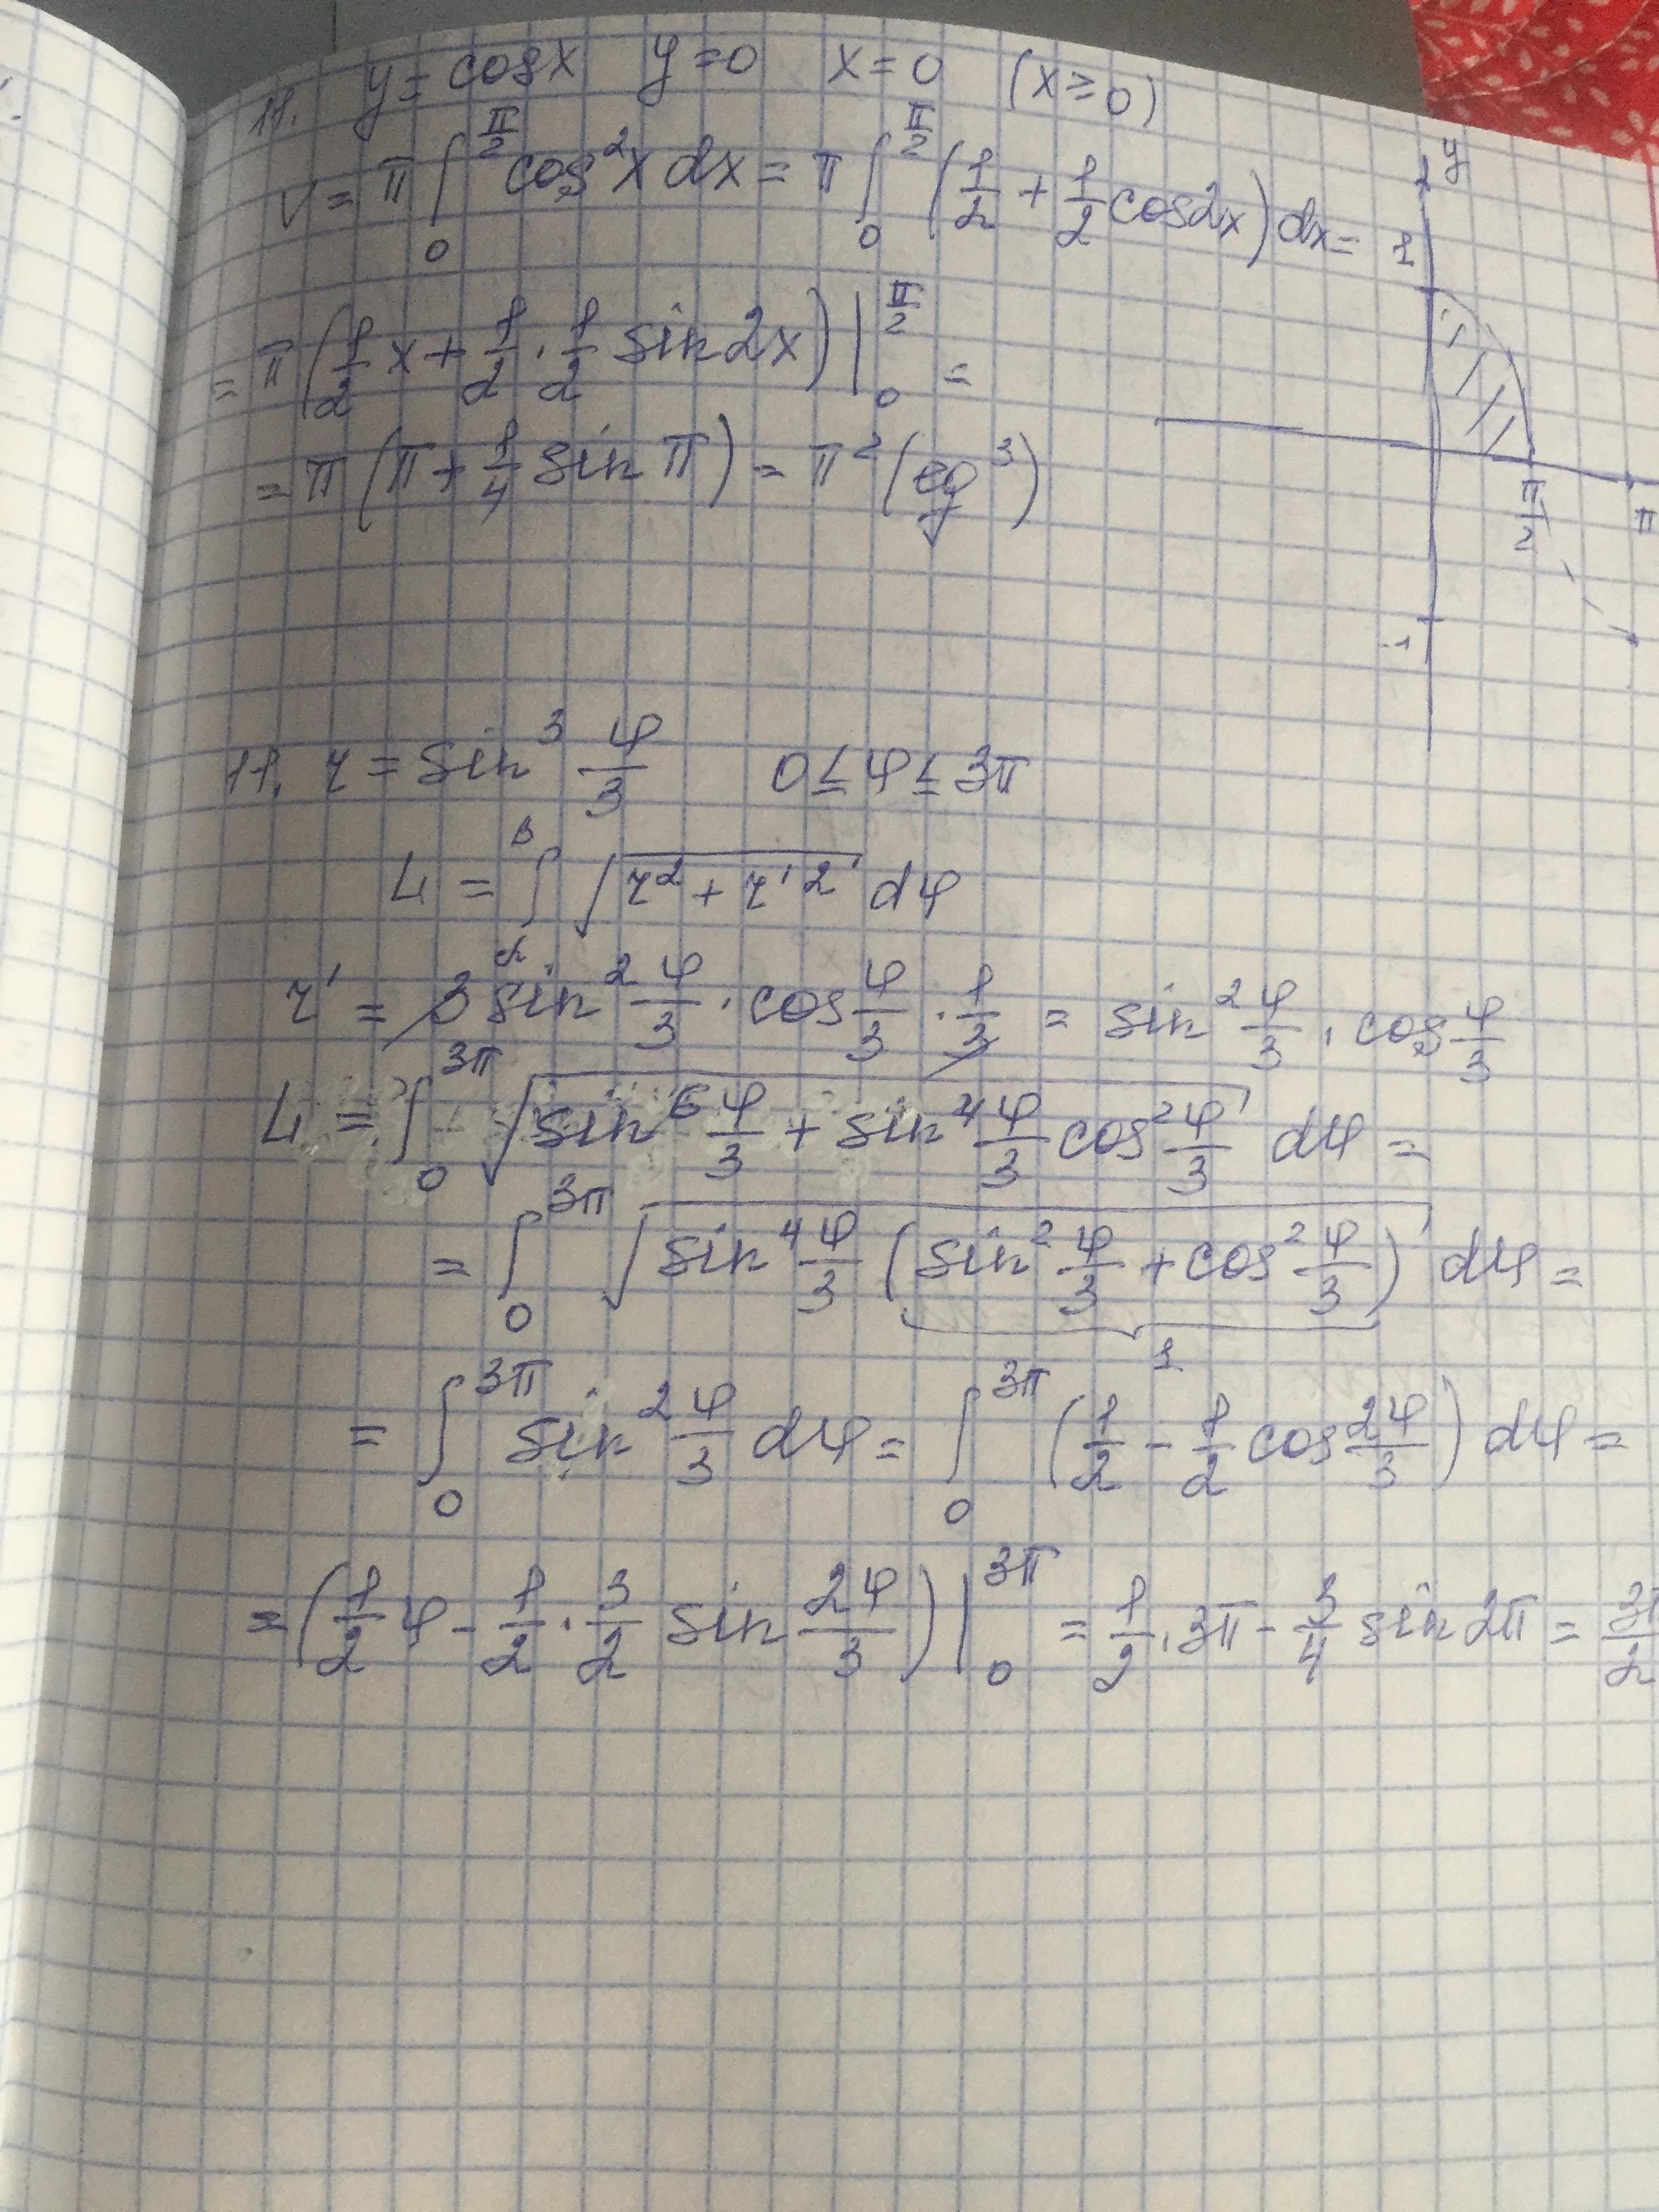 11. y = cosx y = 0 x = 0 (x ≥ 0)
V = π ∫₀^(π/2) cos²x dx = π ∫₀^(π/2) (1/2 + 1/2 cos2x) dx =
= π (1/2 x + 1/2 · 1/2 sin2x) |₀^(π/2) =
= π (π + 1/4 sin π) = π² (eg³)
y
1
π/2
π
-1
11. r = sin³ φ/3 0 ≤ φ ≤ 3π
L = ∫_α^β √(r² + r'²) dφ
r' = 3 sin² φ/3 · cos φ/3 · 1/3 = sin² φ/3 · cos φ/3
L = ∫₀^(3π) √(sin⁶ φ/3 + sin⁴ φ/3 cos² φ/3) dφ =
= ∫₀^(3π) √(sin⁴ φ/3 (sin² φ/3 + cos² φ/3)) dφ =
1
= ∫₀^(3π) sin² φ/3 dφ = ∫₀^(3π) (1/2 - 1/2 cos 2φ/3) dφ =
= (1/2 φ - 1/2 · 3/2 sin 2φ/3) |₀^(3π) = 1/2 · 3π - 3/4 sin 2π = 3π/2